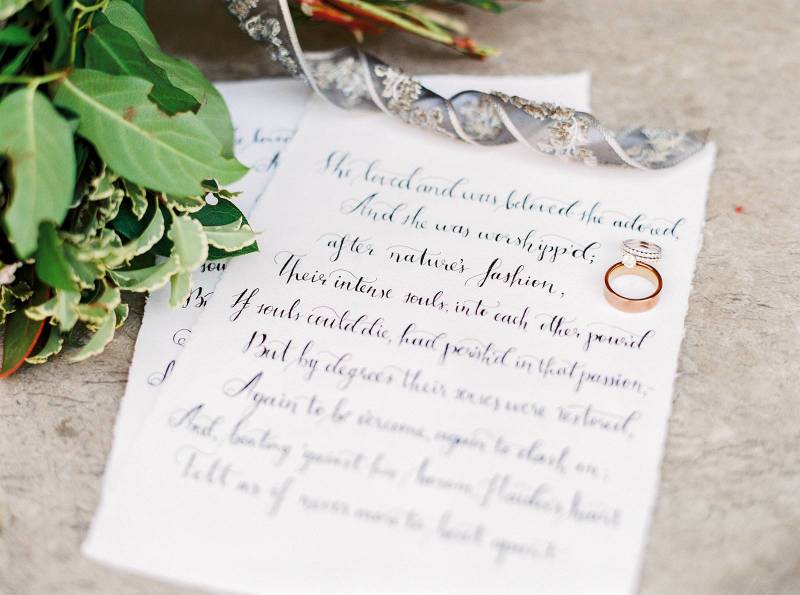 She loved and was beloved-she adored,
And she was worshipp'd;
after nature's fashion,
Their intense souls, into each other pour'd
If souls could die, had perish'd in that passion,-
But by degrees their senses were restored,
Again to be o'ercome, again to dash on;
And, beating 'gainst his bosom, Haidee's heart
Felt as if never more to beat apart.
sou
B